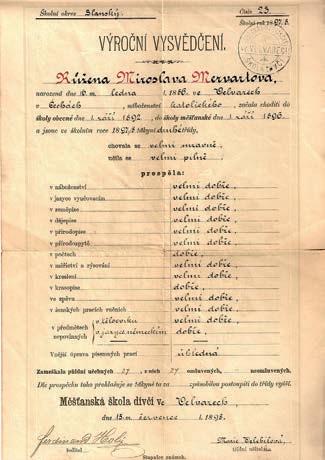 Školní okres Slanský. Číslo 23.
Školní rok 1897/8.
VÝROČNÍ VYSVĚDČENÍ.
Růžena Miroslava Mervartová,
narozená dne 10. m. ledna 1886 ve Velvarech
v Čechách, náboženství katolického, začala choditi do
školy obecné dne 1. září 1892, do školy měšťanské dne 1. září 1896.
a jsouc ve školním roce 1897/8 žákyní druhé třídy,
chovala se velmi mravně,
učila se velmi pilně,
prospěla:
v náboženství velmi dobře,
v jazyce vyučovacím velmi dobře,
v zeměpise velmi dobře,
v dějepise velmi dobře,
v přírodopise velmi dobře,
v přírodozpytě velmi dobře,
v počtech dobře,
v měřictví a rýsování velmi dobře,
v kreslení velmi dobře,
v krasopise dobře,
ve zpěvu velmi dobře,
v ženských pracích ručních velmi dobře,
v předmětech nepovinných v tělocviku velmi dobře,
v jazyce německém dobře.
Vnější úprava písemných prací úhledná
Zameškala půldnů učebných 27, z nich 27 omluvených, – neomluvených.
Dle prospěchu toho prohlašuje se žákyně ta za způsobilou postoupiti do třídy vyšší.
Měšťanská škola dívčí ve Velvarech
dne 15. m. července 1898.
Ferdinand Holý
ředitel.
Marie
třídní učitelka.
Stupnice známek.